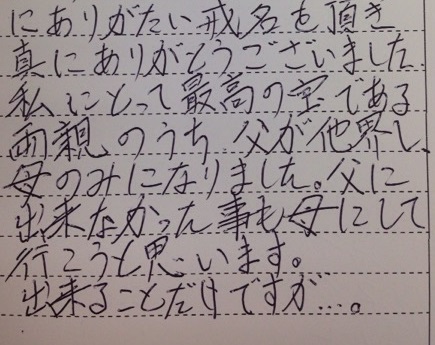 にありがたい戒名を頂き
真にありがとうございました.
私にとって最高の宝である
両親のうち 父が他界し、
母のみになりました。父に
出来なかった事も母にして
行こうと思います。
出来ることだけですが…。